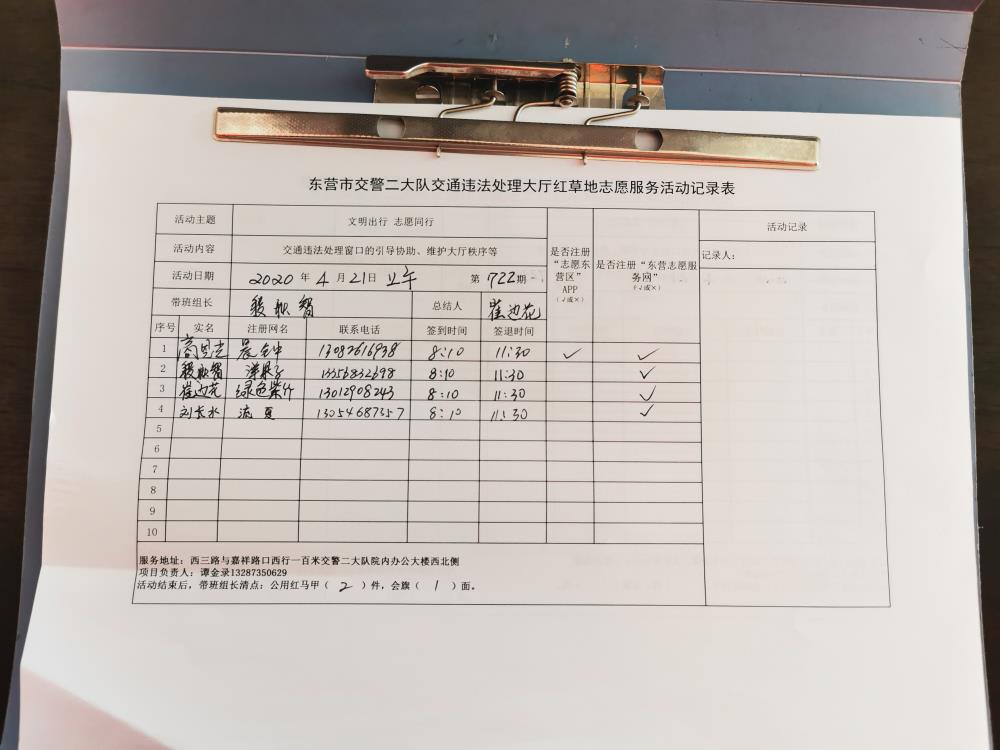 东营市交警二大队交通违法处理大厅红草地志愿服务活动记录表
活动主题 文明出行 志愿同行
活动内容 交通违法处理窗口的引导协助、维护大厅秩序等
活动日期 2020 年 4 月 21 日 上午 第 722 期
是否注册“志愿东营区”APP（√或×）
是否注册“东营志愿服务网”（√或×）
活动记录
记录人：
带班组长 总结人 崔边花
序号 实名 注册网名 联系电话 签到时间 签退时间
1 晨钟 13082616938 8:10 11:30 ✓ ✓
2 洋果子 13356832698 8:10 11:30 ✓
3 崔边花 绿色紫竹 13012908243 8:10 11:30 ✓
4 刘长水 流夏 13054687357 8:10 11:30 ✓
5
6
7
8
9
10
服务地址：西三路与嘉祥路口西行一百米交警二大队院内办公大楼西北侧
项目负责人：谭金录13287350629
活动结束后，带班组长清点：公用红马甲（ 2 ）件，会旗（ 1 ）面。